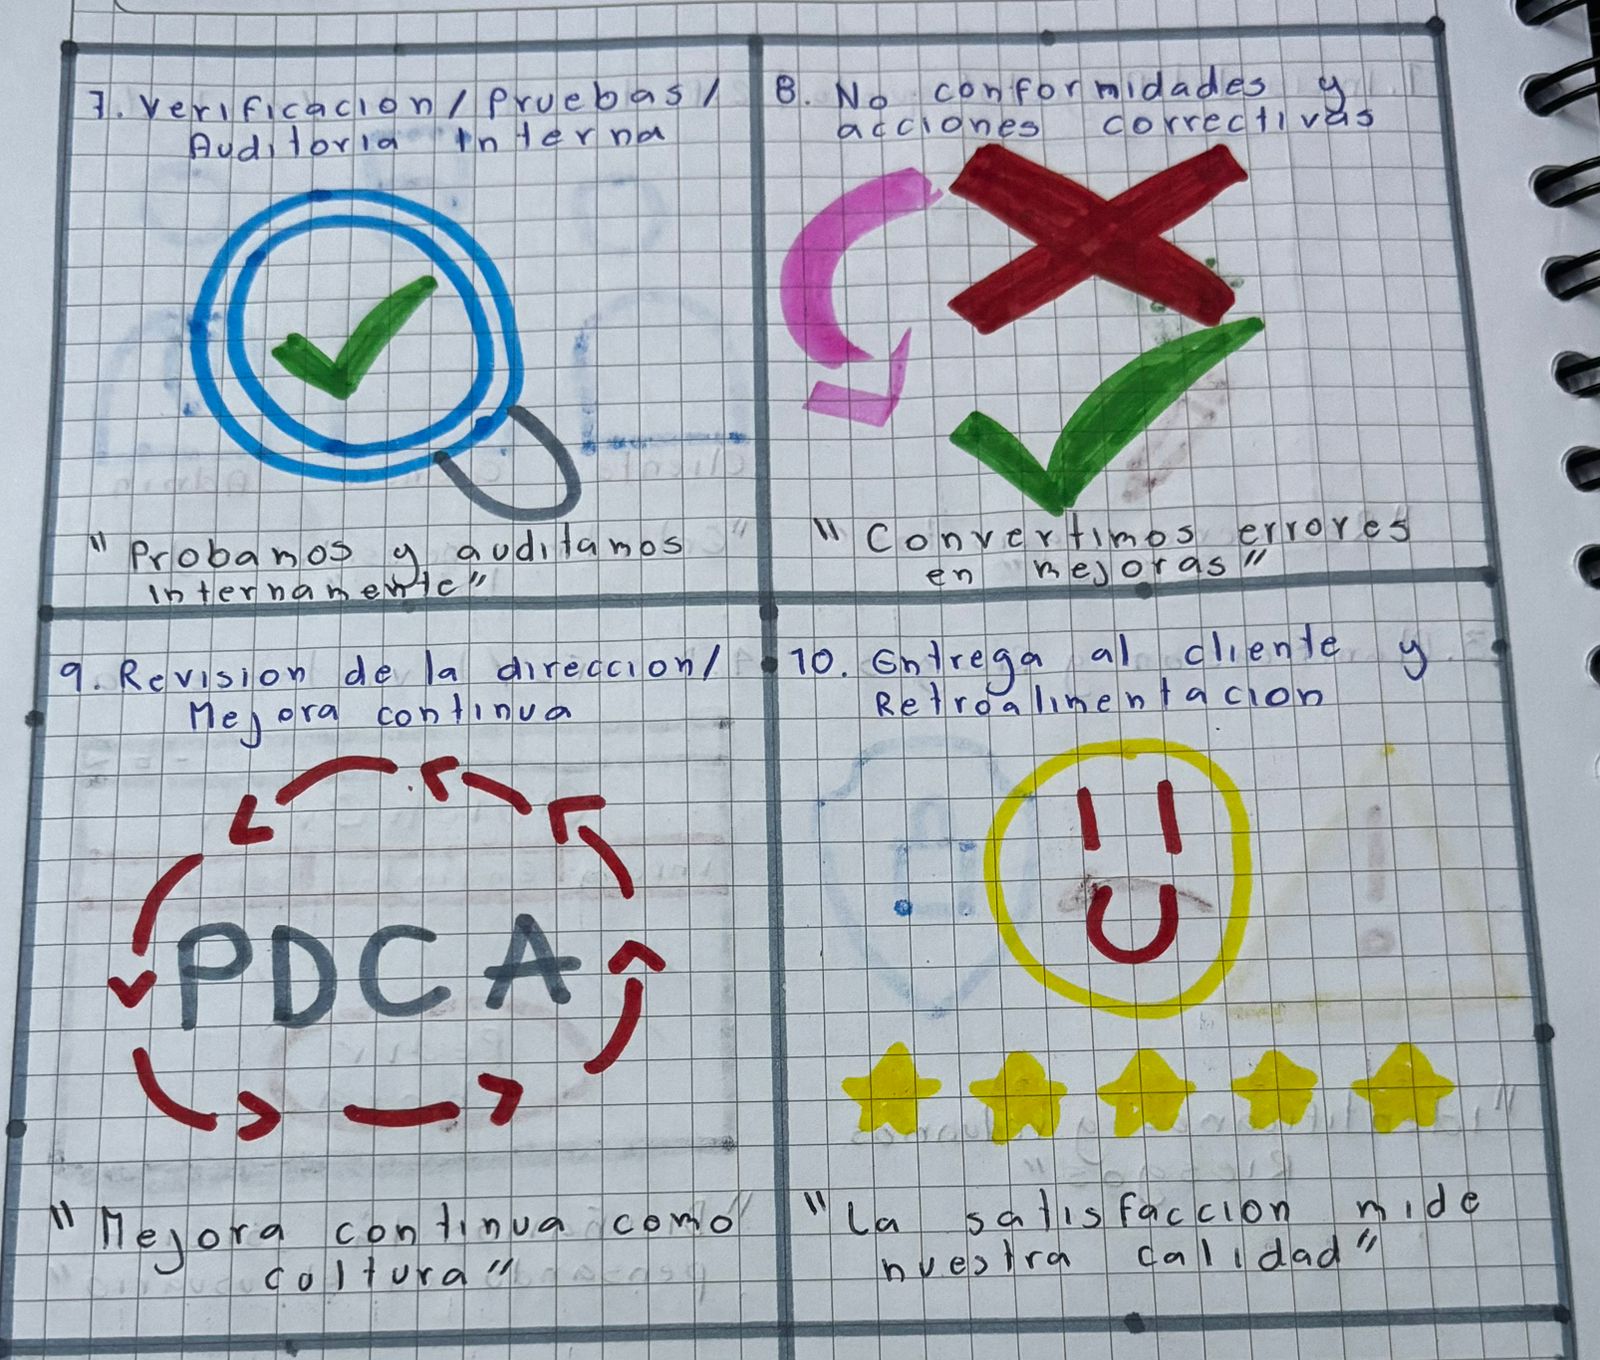 7. Verificacion / Pruebas /
Auditoria Interna
"Probamos y auditamos
internamente"
8. No conformidades y
acciones correctivas
"Convertimos errores
en mejoras"
9. Revision de la direccion /
Mejora continua
PDCA
"Mejora continua como
cultura"
10. Entrega al cliente y
Retroalimentacion
"La satisfaccion mide
nuestra calidad"